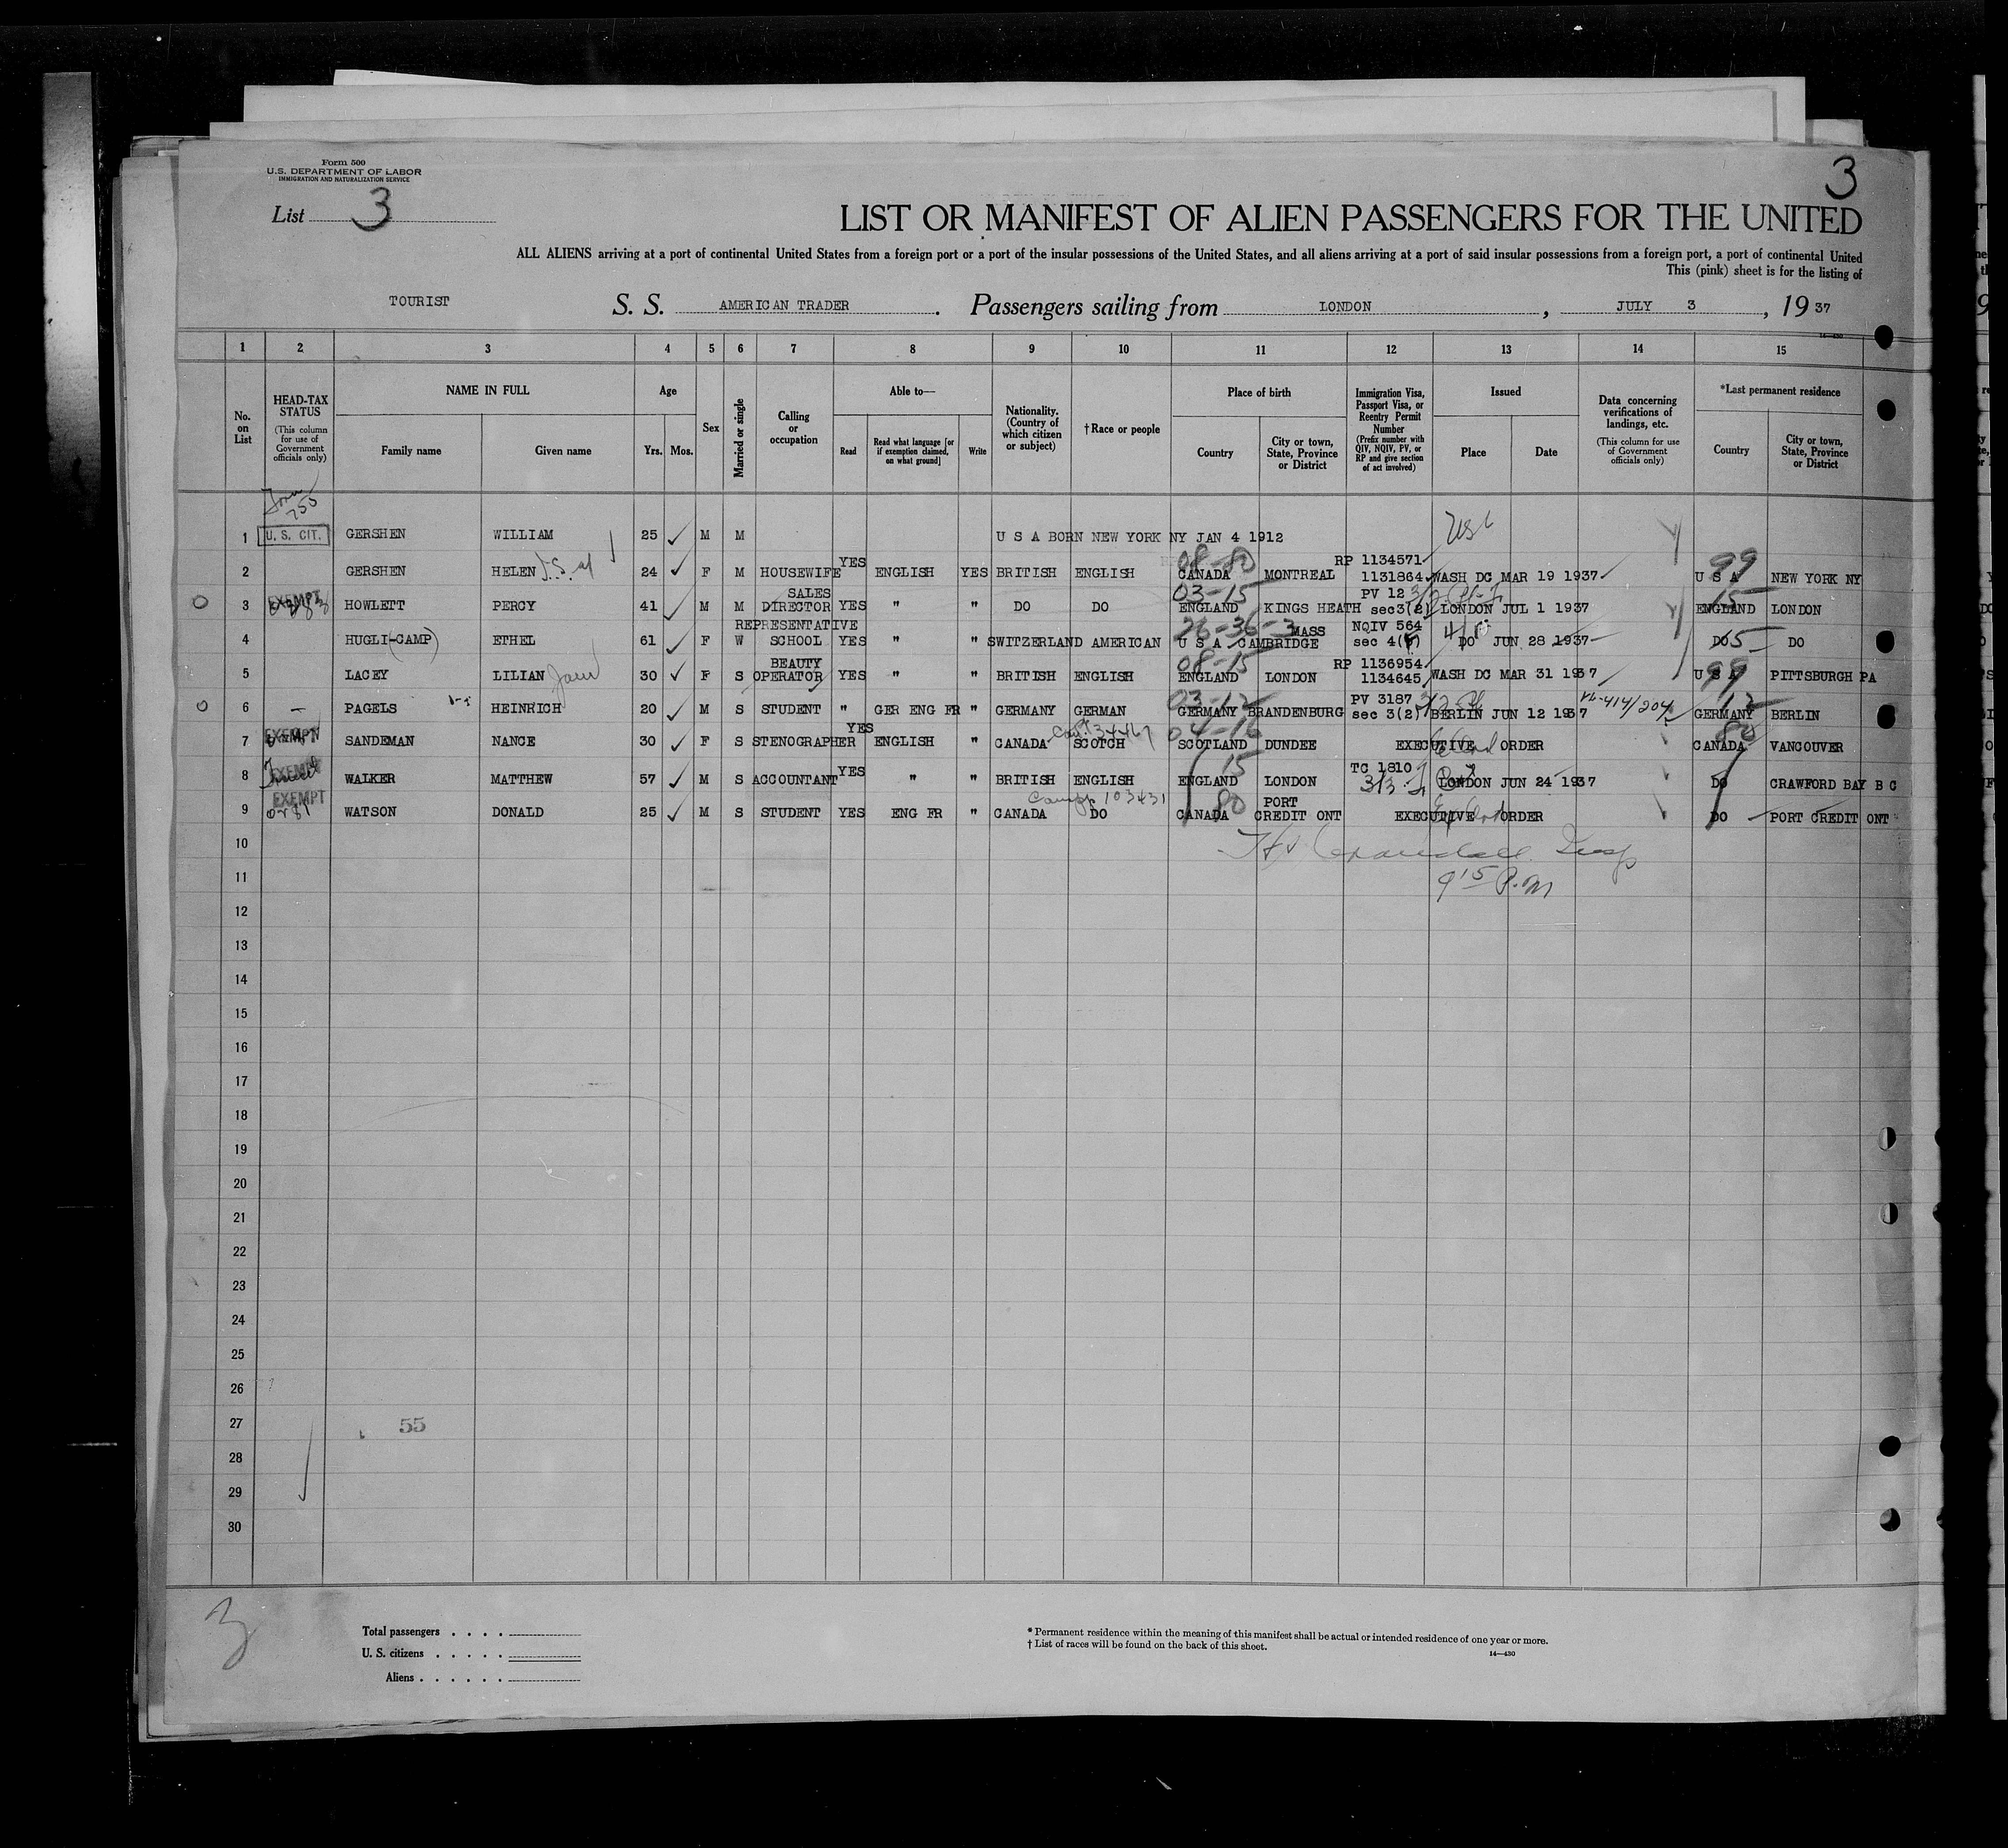 Form 500
U.S. DEPARTMENT OF LABOR
IMMIGRATION AND NATURALIZATION SERVICE
3
List 3
LIST OR MANIFEST OF ALIEN PASSENGERS FOR THE UNITED
ALL ALIENS arriving at a port of continental United States from a foreign port or a port of the insular possessions of the United States, and all aliens arriving at a port of said insular possessions from a foreign port, a port of continental United
This (pink) sheet is for the listing of
TOURIST S. S. AMERICAN TRADER . Passengers sailing from LONDON , JULY 3 , 19 37
14-430
1 2 3 4 5 6 7 8 9 10 11 12 13 14 15
No. on List
HEAD-TAX STATUS (This column for use of Government officials only)
NAME IN FULL
Family name Given name
Age
Yrs. Mos.
Sex
Married or single
Calling or occupation
Able to—
Read Read what language [or if exemption claimed, on what ground] Write
Nationality. (Country of which citizen or subject)
†Race or people
Place of birth
Country City or town, State, Province or District
Immigration Visa, Passport Visa, or Reentry Permit Number (Prefix number with QIV, NQIV, PV, or RP and give section of act involved)
Issued
Place Date
Data concerning verifications of landings, etc. (This column for use of Government officials only)
*Last permanent residence
Country City or town, State, Province or District
Form 755
1 U. S. CIT. GERSHEN WILLIAM 25 M M U S A BORN NEW YORK NY JAN 4 1912 USC
2 GERSHEN HELEN 24 F M HOUSEWIFE YES ENGLISH YES BRITISH ENGLISH 08-80 CANADA MONTREAL RP 1134571 1131864 WASH DC MAR 19 1937 99 U S A NEW YORK NY
3 EXEMPT HOWLETT PERCY 41 M M SALES DIRECTOR YES " " DO DO 03-15 ENGLAND KINGS HEATH PV 12 sec3(2) LONDON JUL 1 1937 15 ENGLAND LONDON
4 HUGLI(-CAMP) ETHEL 61 F W REPRESENTATIVE SCHOOL YES " " SWITZERLAND AMERICAN 26-36-3 U S A CAMBRIDGE MASS NQIV 564 sec 4( ) DO JUN 28 1937 DO DO
5 LACEY LILIAN 30 F S BEAUTY OPERATOR YES " " BRITISH ENGLISH 08-15 ENGLAND LONDON RP 1136954 1134645 WASH DC MAR 31 1937 99 U S A PITTSBURGH PA
6 — PAGELS HEINRICH 20 M S STUDENT " GER ENG FR " GERMANY GERMAN 03-12 GERMANY BRANDENBURG PV 3187 sec 3(2) BERLIN JUN 12 1937 12 GERMANY BERLIN
7 EXEMPT SANDEMAN NANCE 30 F S STENOGRAPHER YES ENGLISH " CANADA SCOTCH 04-16 SCOTLAND DUNDEE EXECUTIVE ORDER 80 CANADA VANCOUVER
8 EXEMPT WALKER MATTHEW 57 M S ACCOUNTANT YES " " BRITISH ENGLISH 15 ENGLAND LONDON TC 1810 LONDON JUN 24 1937 DO CRAWFORD BAY B C
9 EXEMPT WATSON DONALD 25 M S STUDENT YES ENG FR " CANADA DO 103431 80 CANADA PORT CREDIT ONT EXECUTIVE ORDER DO PORT CREDIT ONT
10 Crandall Insp
11 9 15 P.M
12
13
14
15
16
17
18
19
20
21
22
23
24
25
26
27 55
28
29
30
3
Total passengers . . . .
U. S. citizens . . . . .
Aliens . . . . . .
* Permanent residence within the meaning of this manifest shall be actual or intended residence of one year or more.
† List of races will be found on the back of this sheet.
14—430